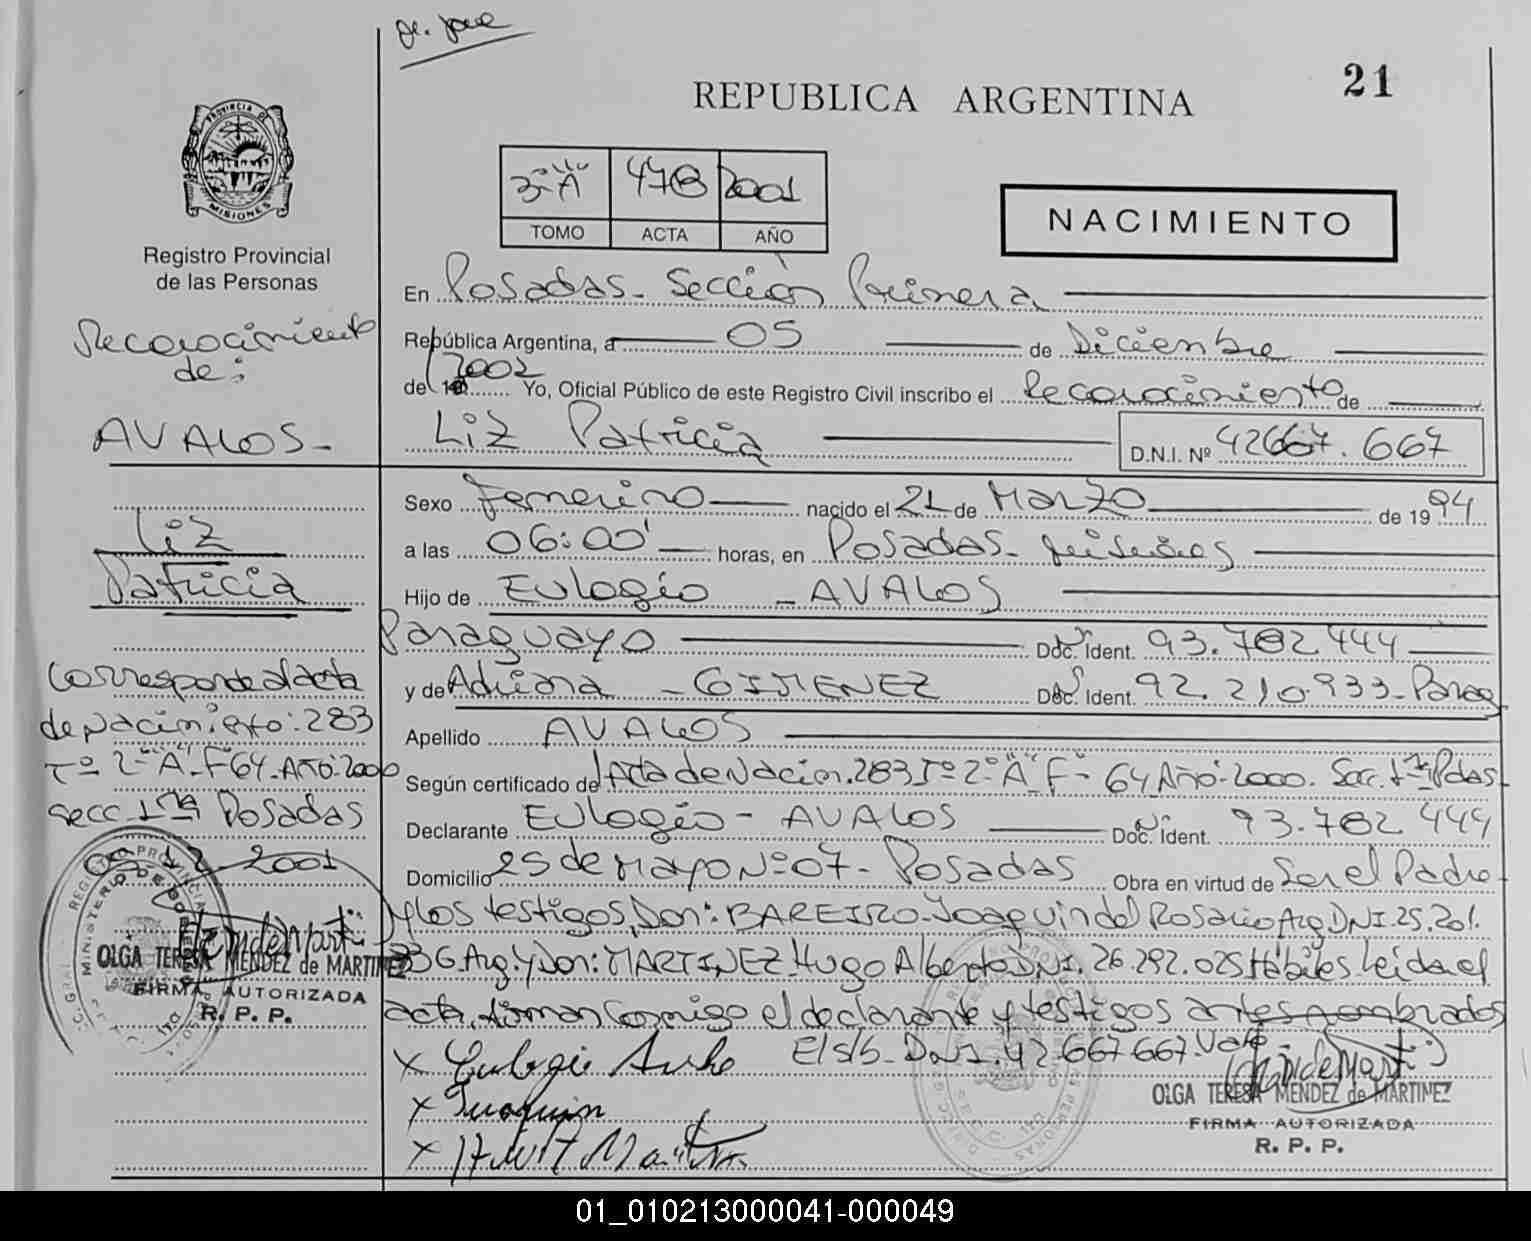 21
REPUBLICA ARGENTINA
PROVINCIA DE
MISIONES
Registro Provincial
de las Personas
3º "A" 478 2001
TOMO ACTA AÑO
NACIMIENTO
Reconocimiento
de:
AVALOS-
Liz
Patricia
Corresponde al acta
de nacimiento: 283
Tº 2º "A" Fº 64. Año: 2000
Secc. 1ra Posadas
05 12 2001
OLGA TERESA MENDEZ de MARTINEZ
FIRMA AUTORIZADA
R. P. P.
En Posadas- Sección Primera
República Argentina, a 05 de Diciembre
de 19 2001 Yo, Oficial Público de este Registro Civil inscribo el Reconocimiento de
Liz Patricia D.N.I. Nº 42667.667
Sexo Femenino nacido el 21 de Marzo de 1994
a las 06:00' horas, en Posadas- Misiones
Hijo de Eulogio - AVALOS
Paraguayo Doc. Ident. Nº 93.782.444
y de Adriana - GIMENEZ Doc. Ident. Nº 92.210.933- Parag
Apellido AVALOS
Según certificado de Acta de Nacim. 283 Tº 2º "A" Fº- 64 Año: 2000. Sec. 1ra Pdas-
Declarante Eulogio - AVALOS Doc. Ident. Nº 93.782.444
Domicilio 25 de Mayo Nº 07- Posadas Obra en virtud de Ser el Padre-
y los testigos, Don: BAREIRO- Joaquin del Rosario Arg DNI. 25.201.
336 Arg. y Don: MARTINEZ Hugo Alberto DNI. 26.292.025 Hábiles Leida el
acta, firman Conmigo el declarante y testigos antes nombrados
E/S/b- DNI. 42.667.667. Vale-
x Eulogio
x Joaquin
x
OLGA TERESA MENDEZ de MARTINEZ
FIRMA AUTORIZADA
R. P. P.
01_010213000041-000049